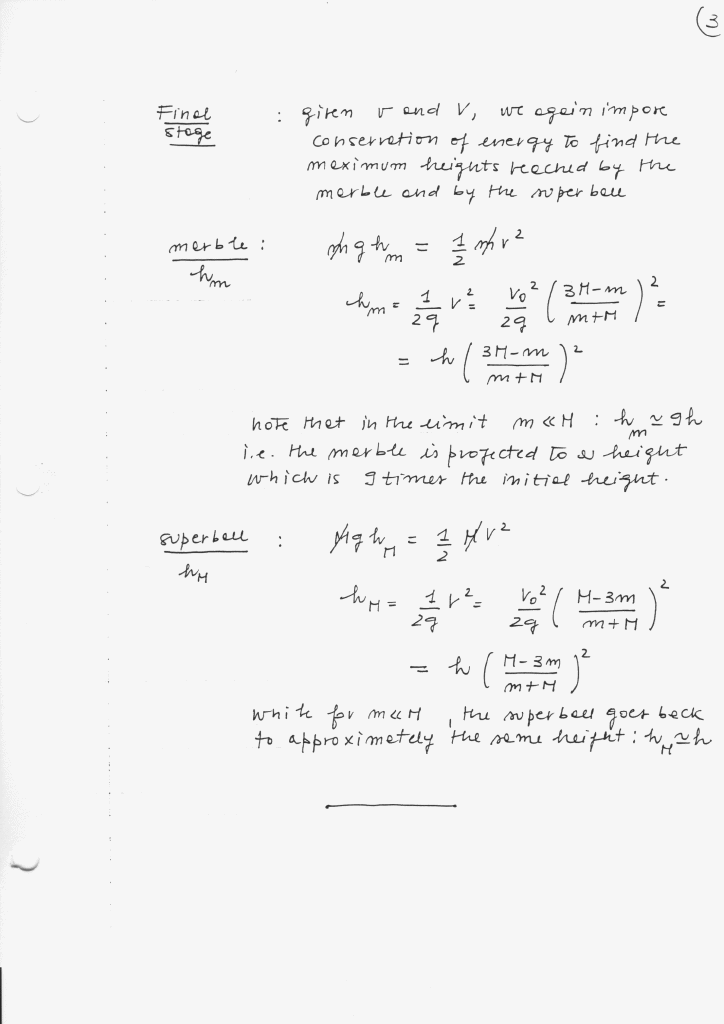 3
Final stage : given v and V, we again impose
conservation of energy to find the
maximum heights reached by the
marble and by the super ball
marble : m g h_m = 1/2 m v^2
h_m
h_m = 1/2g v^2 = V_0^2/2g ( 3M-m / m+M )^2 =
= h ( 3M-m / m+M )^2
note that in the limit m << M : h_m ≃ 9h
i.e. the marble is projected to a height
which is 9 times the initial height.
superball : M g h_M = 1/2 M V^2
h_M
h_M = 1/2g V^2 = V_0^2/2g ( M-3m / m+M )^2
= h ( M-3m / m+M )^2
while for m << M , the superball goes back
to approximately the same height : h_M ≃ h